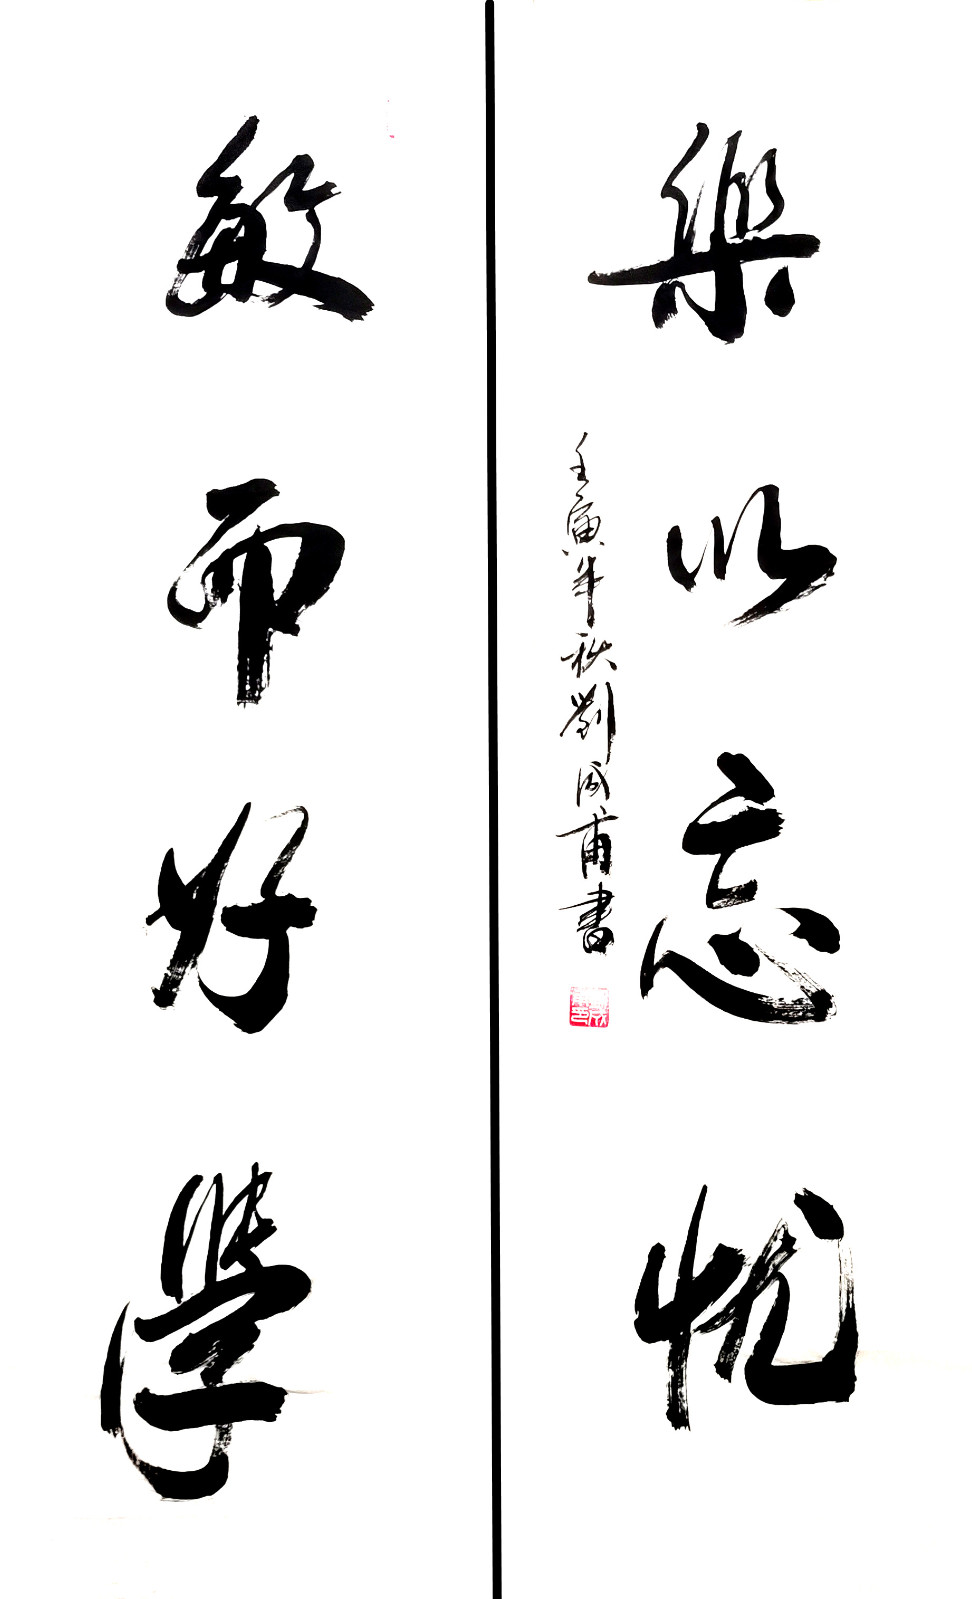 樂以忘忧
壬寅年秋劉成甫書
敏而好学